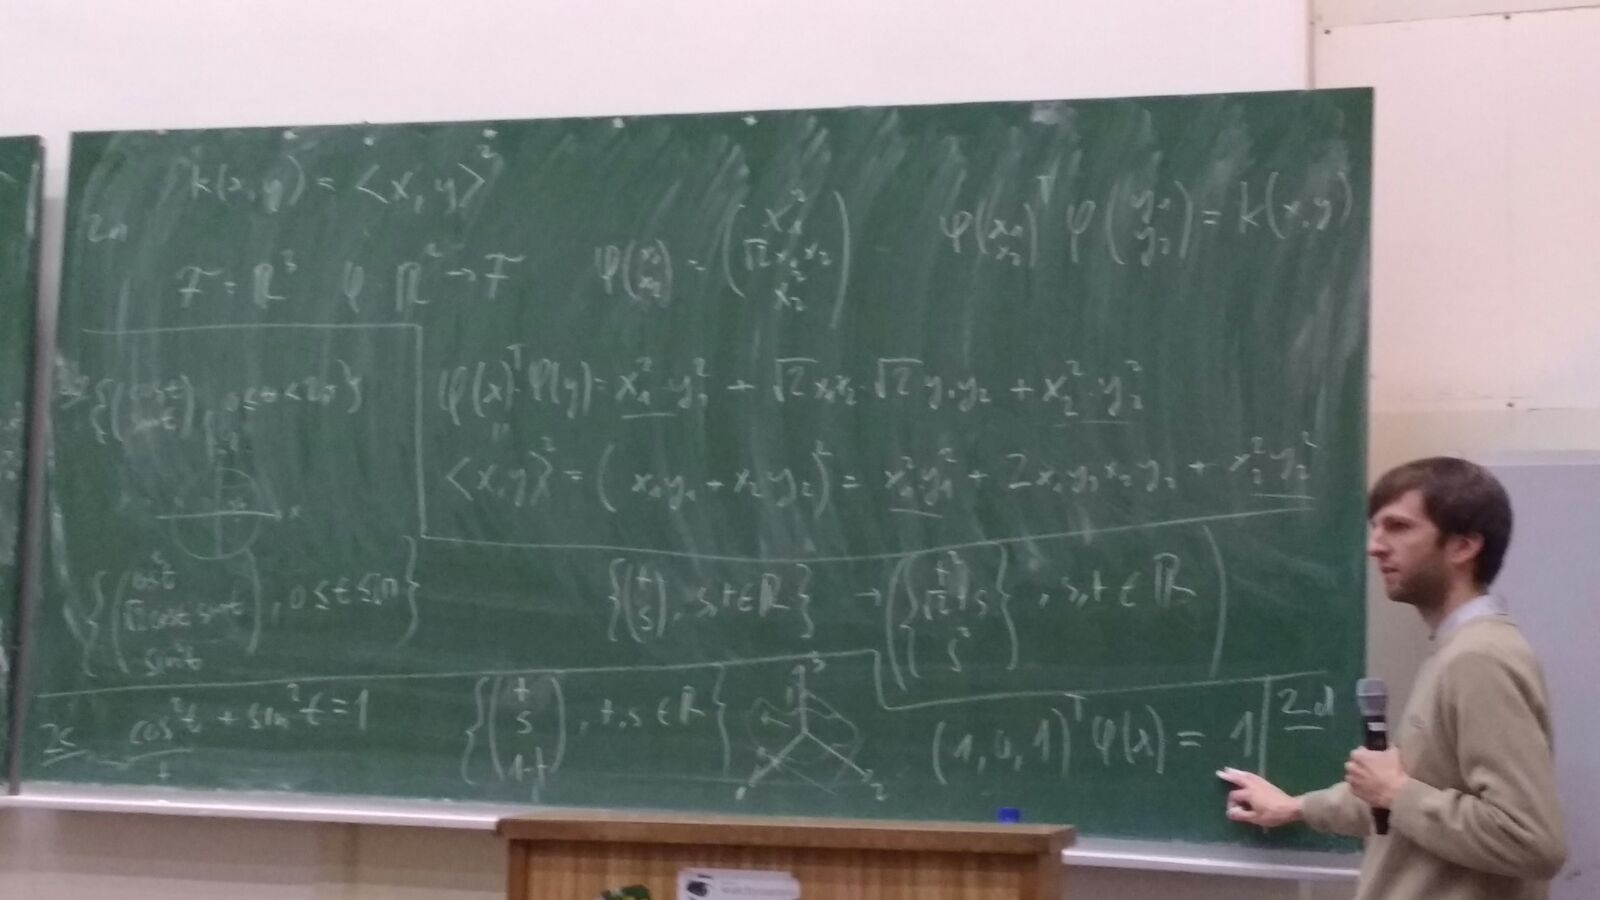 k(x,y) = <x,y>²
2a
F = ℝ³ φ ℝ² → F
φ(x₁ x₂) = (x₁² √2x₁x₂ x₂²)
φ(x₁ x₂)ᵀ φ(y₁ y₂) = k(x,y)
φ(x)ᵀ·φ(y) = x₁²·y₁² + √2 x₁x₂·√2 y₁y₂ + x₂²·y₂²
<x,y>² = (x₁y₁ + x₂y₂)² = x₁²y₁² + 2x₁y₁x₂y₂ + x₂²y₂²
{(cos t sin t), 0 ≤ t < 2π}
{(cos²t √2 cos t sin t sin²t), 0 ≤ t ≤ π}
{(t s), s,t ∈ ℝ} → {(t² √2 ts s²)}, s,t ∈ ℝ
2c cos²t + sin²t = 1
t
{(t s 1-t), t,s ∈ ℝ}
3
1 2
(1,0,1)ᵀ φ(x) = 1
2d